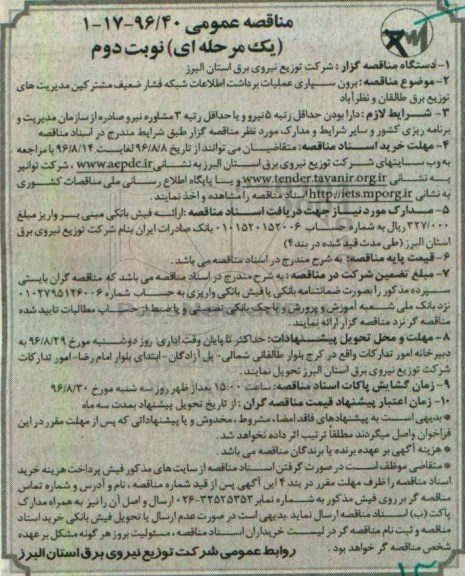 مناقصه عمومی ۹۶/۴۰-۱۷-۱
(یک مرحله ای) نوبت دوم
۱- دستگاه مناقصه گزار: شرکت توزیع نیروی برق استان البرز
۲- موضوع مناقصه: برون سپاری عملیات برداشت اطلاعات شبکه فشار ضعیف مشترکین مدیریت های
توزیع برق طالقان و نظرآباد
۳- شرایط لازم: دارا بودن حداقل رتبه ۵ نیرو و یا حداقل رتبه ۳ مشاوره نیرو صادره از سازمان مدیریت و
برنامه ریزی کشور و سایر شرایط و مدارک مورد نظر مناقصه گزار طبق شرایط مندرج در اسناد مناقصه
۴- مهلت خرید اسناد مناقصه: متقاضیان می توانند از تاریخ ۹۶/۸/۸ لغایت ۹۶/۸/۱۴ با مراجعه
به وب سایتهای شرکت توزیع نیروی برق استان البرز به نشانی www.aepdc.ir، شرکت توانیر
به نشانی www.tender.tavanir.org.ir و یا پایگاه اطلاع رسانی ملی مناقصات کشوری
به نشانی http://iets.mporg.ir اسناد مناقصه را مشاهده و اخذ نمایند.
۵- مدارک مورد نیاز جهت دریافت اسناد مناقصه: ارائه فیش بانکی مبنی بر واریز مبلغ
۳۲۷/۰۰۰ ریال به شماره حساب ۰۱۰۱۵۲۰۱۵۲۰۰۶ بانک صادرات ایران بنام شرکت توزیع نیروی برق
استان البرز (طی مدت قید شده در بند۴)
۶- قیمت پایه مناقصه: به شرح مندرج در اسناد مناقصه می باشد.
۷- مبلغ تضمین شرکت در مناقصه: به شرح مندرج در اسناد مناقصه می باشد که مناقصه گران بایستی
سپرده مذکور را بصورت ضمانتنامه بانکی یا فیش بانکی واریزی به حساب شماره ۰۱۰۲۷۹۵۱۲۶۰۰۶
نزد بانک ملی شعبه آموزش و پرورش و یا چک بانکی تضمینی و یا ضبط از حساب مطالبات تایید شده
مناقصه گر نزد مناقصه گزار ارائه نمایند.
۸- مهلت و محل تحویل پیشنهادات: حداکثر تا پایان وقت اداری روز دوشنبه مورخ ۹۶/۸/۲۹ به
دبیرخانه امور تدارکات واقع در کرج بلوار طالقانی شمالی- پل آزادگان- ابتدای بلوار امام رضا- امور تدارکات
شرکت توزیع نیروی برق استان البرز تحویل نمایند.
۹- زمان گشایش پاکات اسناد مناقصه: ساعت ۱۵:۰۰ بعداز ظهر روز سه شنبه مورخ ۹۶/۸/۳۰
۱۰- زمان اعتبار پیشنهاد قیمت مناقصه گران: از تاریخ تحویل پیشنهاد بمدت سه ماه
* بدیهی است به پیشنهادهای فاقد امضاء، مشروط، مخدوش و یا پیشنهاداتی که پس از مهلت مقرر در این
فراخوان واصل میگردند مطلقا ترتیب اثر داده نخواهد شد.
* هزینه آگهی بر عهده برنده یا برندگان مناقصه می باشد.
* متقاضی موظف است در صورت گرفتن اسناد مناقصه از سایت های مذکور فیش پرداخت هزینه خرید
اسناد مناقصه را ظرف مهلت مقرر در بند ۴ این آگهی پس از قید شماره مناقصه، نام و آدرس و شماره تماس
مناقصه گر بر روی فیش مذکور به شماره نمابر ۳۳۵۲۵۳۵۳-۰۲۶ ارسال و اصل آن را نیز به همراه مدارک
پاکت (ب) اسناد مناقصه ارسال نماید. بدیهی است در صورت عدم ارسال یا تحویل فیش بانکی خرید اسناد
مناقصه و ثبت نام مناقصه گر در لیست خریداران اسناد مناقصه، مسئولیت بروز هر گونه مشکل بر عهده
شخص مناقصه گر خواهد بود.
روابط عمومی شرکت توزیع نیروی برق استان البرز